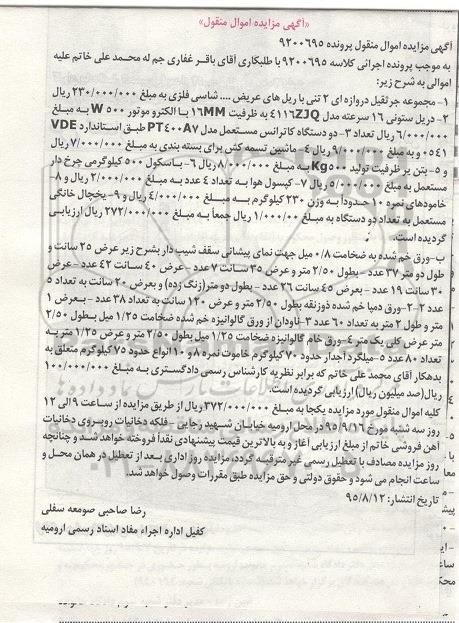 «آگهی مزایده اموال منقول»
آگهی مزایده اموال منقول پرونده ۹۲۰۰۶۹۵
به موجب پرونده اجرائی کلاسه ۹۲۰۰۶۹۵ با طلبکاری آقای باقر غفاری جم له محمد علی خاتم علیه
اموالی به شرح زیر:
۱- مجموعه جرثقیل دروازه ای ۲ تنی با ریل های عریض .... شاسی فلزی به مبلغ ۲۳۰/۰۰۰/۰۰۰ ریال
۲- دریل ستونی ۱۶ سرعته مدل ۴۱۱۶ZJQ به ظرفیت ۱۶MM با الکترو موتور ۵۰۰ W به مبلغ
۶/۰۰۰/۰۰۰ ریال تعداد ۳- دو دستگاه کاترانس مستعمل مدل PT۴۰۰A۷ طبق استاندارد VDE
۰۵۴۱ و به مبلغ ۹/۰۰۰/۰۰۰ ریال ۴- ماشین تسمه کش برای بسته بندی به مبلغ ۷/۰۰۰/۰۰۰ ریال
و ۵- بتن بر ظرفیت تولید ۵۰۰Kg به مبلغ ۸/۰۰۰/۰۰۰ ریال ۶- باسکول ۵۰۰ کیلوگرمی چرخ دار
مستعمل به مبلغ ۵/۰۰۰/۰۰۰ ریال ۷- کپسول هوا به تعداد ۴ عدد به مبلغ ۲/۰۰۰/۰۰۰ ریال و ۸-
خاموهای نمره ۱۰ حدوداً به وزن ۲۳۰ کیلوگرم به مبلغ ۴/۰۰۰/۰۰۰ ریال و ۹- یخچال خانگی
مستعمل به تعداد دو دستگاه به مبلغ ۱/۰۰۰/۰۰ ریال جمعاً به مبلغ ۲۷۲/۰۰۰/۰۰۰ ریال ارزیابی
گردیده است.
ب-ورق خم شده به ضخامت ۰/۸ میل جهت نمای پیشانی سقف شیب دار بشرح زیر عرض ۲۵ سانت و
طول دو متر ۳۷ عدد - بطول ۲/۵۰ متر و عرض ۳۵ سانت ۷ عدد - عرض ۴۰ سانت ۴۲ عدد - عرض
۳۰ سانت ۱۹ عدد - بعرض ۴۵ سانت ۲۶ عدد - بطول دو متر (زنگ زده) و بعرض ۲۰ سانت به تعداد ۵
عدد ۲-۲-ورق دمپا خم شده ذوزنقه بطول ۲/۵۰ متر و عرض ۱۲۰ سانت به تعداد ۳۸ عدد - بعرض ۱
متر و طول ۲ متر به تعداد ۶۰ عدد ۳-ناودان از ورق گالوانیزه خم شده ضخامت ۱/۲۵ میل بطول ۲/۵۰
متر عرض کلی یک متر ۴-ورق خام گالوانیزه ضخامت ۱/۲۵ میل بطول ۲/۵۰ متر و عرض ۱/۲۵ متر به
تعداد ۸۰ عدد ۵-میلگرد آجدار حدود ۷۰ کیلوگرم خاموت نمره ۸ و ۱۰ انواع حدود ۷۵ کیلوگرم متعلق به
بدهکار آقای محمد علی خاتم که برابر نظریه کارشناس رسمی دادگستری به مبلغ ۱۰۰/۰۰۰/۰۰۰
ریال (صد میلیون ریال) ارزیابی گردیده است.
کلیه اموال منقول مورد مزایده یکجا به مبلغ ۳۷۲/۰۰۰/۰۰۰ ریال از طریق مزایده از ساعت ۹ الی ۱۲
روز سه شنبه مورخ ۹۵/۹/۱۶ در محل ارومیه خیابان شهید رجایی - فلکه دخانیات روبروی دخانیات
آهن فروشی خاتم از مبلغ ارزیابی آغاز و به بالاترین قیمت پیشنهادی نقداً فروخته خواهد شد و چنانچه
روز مزایده مصادف با تعطیل رسمی غیر مترقبه گردد مزایده روز اداری بعد از تعطیل در همان محل و
ساعت انجام می شود و حقوق دولتی و حق مزایده طبق مقررات وصول خواهد شد.
تاریخ انتشار: ۹۵/۸/۱۲
رضا صاحبی صومعه سفلی
کفیل اداره اجراء مفاد اسناد رسمی ارومیه